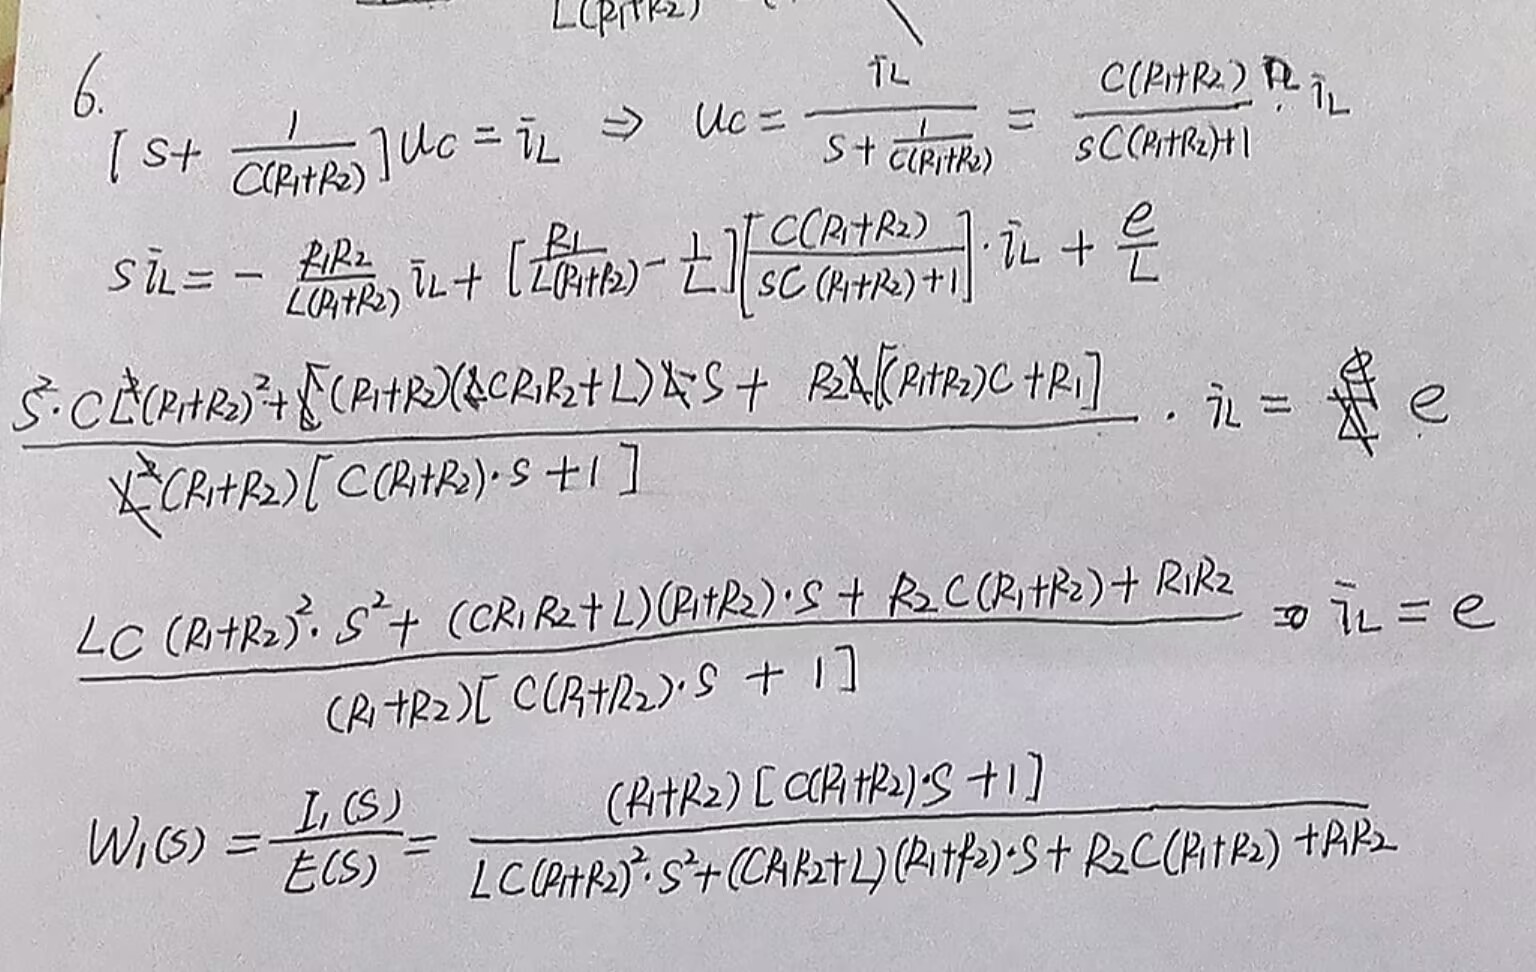 L(R₁+R₂)
6.
[S + 1/(C(R₁+R₂))] uc = iL ⇒ uc = iL/(S + 1/(C(R₁+R₂))) = C(R₁+R₂)/(SC(R₁+R₂)+1) · iL
S iL = - R₁R₂/(L(R₁+R₂)) iL + [R₁/(L(R₁+R₂)) - 1/L][C(R₁+R₂)/(SC(R₁+R₂)+1)] · iL + e/L
(S²·CL(R₁+R₂)² + (R₁+R₂)(CR₁R₂+L)S + R₂[(R₁+R₂)C+R₁])/((R₁+R₂)[C(R₁+R₂)·S+1]) · iL = e
(LC(R₁+R₂)²·S² + (CR₁R₂+L)(R₁+R₂)·S + R₂C(R₁+R₂)+R₁R₂)/((R₁+R₂)[C(R₁+R₂)·S+1]) iL = e
W₁(S) = I₁(S)/E(S) = (R₁+R₂)[C(R₁+R₂)·S+1]/(LC(R₁+R₂)²·S²+(CR₁R₂+L)(R₁+R₂)·S+R₂C(R₁+R₂)+R₁R₂)